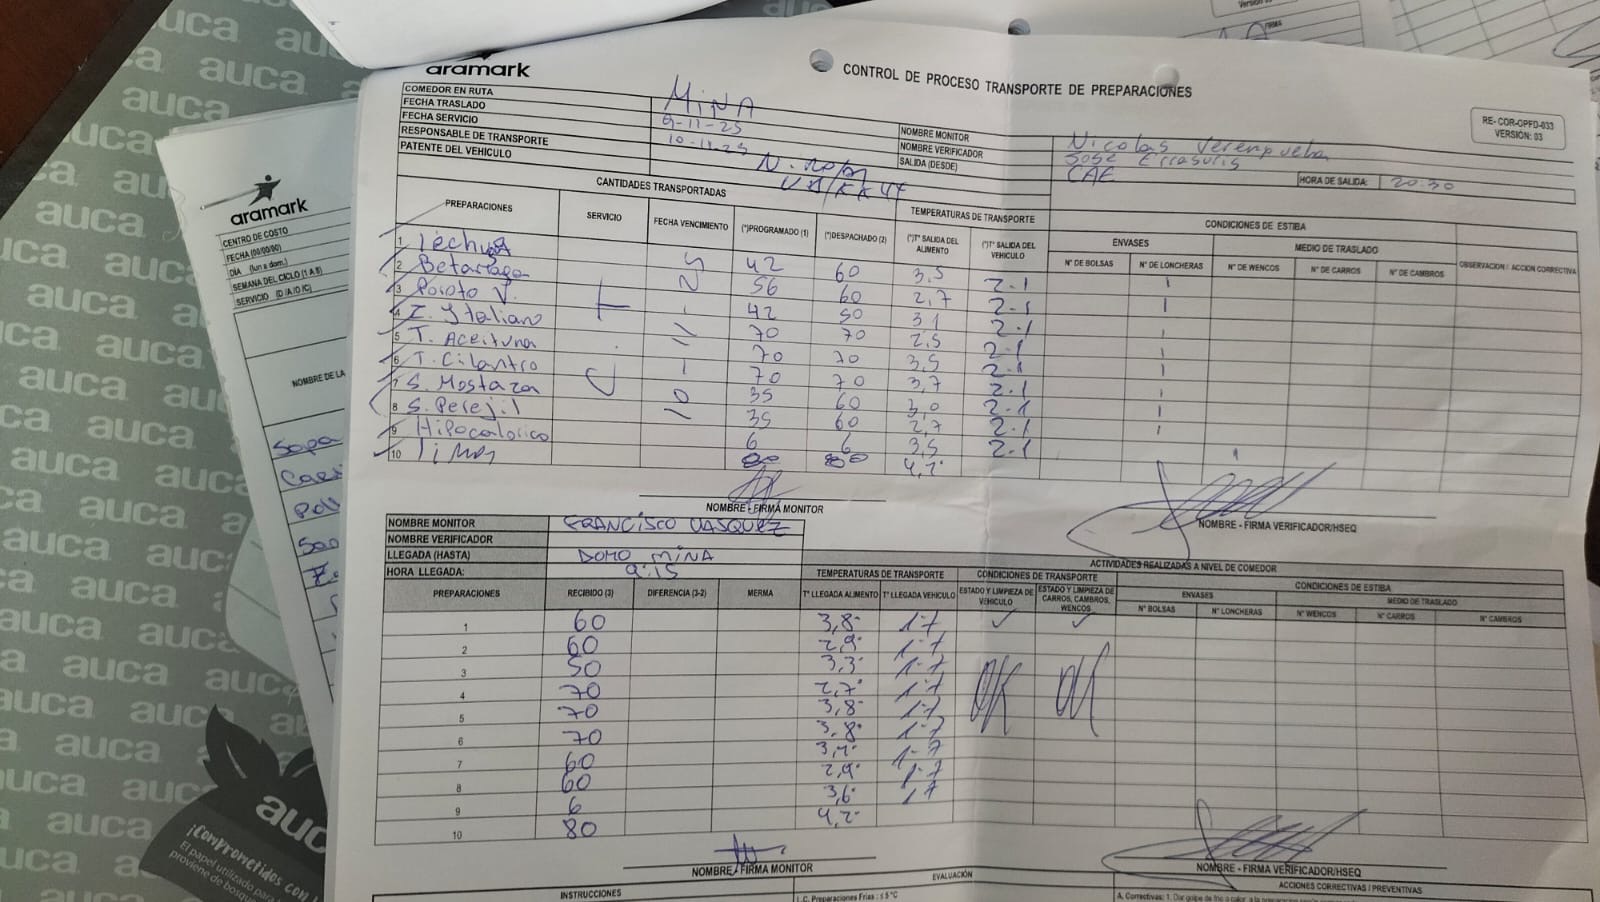 auca
aramark
CENTRO DE COSTO
FECHA (00/00/00)
DÍA (lun a dom.)
SEMANA DEL CICLO (1 A 8)
SERVICIO (D /A /D /C)
NOMBRE DE LA
Sopa
¡Comprometidos con
El papel utilizado para
proviene de bosq
FIRMA
aramark
CONTROL DE PROCESO TRANSPORTE DE PREPARACIONES
RE- COR-OPFD-033
VERSIÓN: 03
COMEDOR EN RUTA MINA
FECHA TRASLADO 9-11-25
FECHA SERVICIO 10-11-25
RESPONSABLE DE TRANSPORTE
PATENTE DEL VEHICULO
NOMBRE MONITOR Nicolas
NOMBRE VERIFICADOR José Errasuris
SALIDA (DESDE) CAE
HORA DE SALIDA: 20:30
CANTIDADES TRANSPORTADAS
TEMPERATURAS DE TRANSPORTE
CONDICIONES DE ESTIBA
PREPARACIONES SERVICIO FECHA VENCIMIENTO (*)PROGRAMADO (1) (*)DESPACHADO (2) (*)T° SALIDA DEL ALIMENTO (*)T° SALIDA DEL VEHICULO
ENVASES MEDIO DE TRASLADO OBSERVACION / ACCION CORRECTIVA
N° DE BOLSAS N° DE LONCHERAS N° DE WENCOS N° DE CARROS N° DE CAMBROS
1 Lechuga 42 60 3,5 2.1
2 Betarraga 56 60 2,7 2.1
3 Poroto V. 42 50 3,1 2.1
4 Z. Italiano 70 70 2,5 2.1
5 T. Aceituna 70 70 3,5 2.1
6 T. Cilantro 70 70 3,7 2.1
7 S. Mostaza 35 60 3,0 2.1
8 S. Perejil 35 60 2,7 2.1
9 Hipocalorico 6 6 3,5 2.1
10 Limon 80 80 4,2°
NOMBRE - FIRMA MONITOR
NOMBRE - FIRMA VERIFICADOR/HSEQ
NOMBRE MONITOR FRANCISCO VASQUEZ
NOMBRE VERIFICADOR
LLEGADA (HASTA) DOMO MINA
HORA LLEGADA: 9:15
ACTIVIDADES REALIZADAS A NIVEL DE COMEDOR
TEMPERATURAS DE TRANSPORTE CONDICIONES DE TRANSPORTE CONDICIONES DE ESTIBA
PREPARACIONES RECIBIDO (3) DIFERENCIA (3-2) MERMA T° LLEGADA ALIMENTO T° LLEGADA VEHICULO ESTADO Y LIMPIEZA DE VEHICULO ESTADO Y LIMPIEZA DE CARROS, CAMBROS, WENCOS
ENVASES MEDIO DE TRASLADO
N° BOLSAS N° LONCHERAS N° WENCOS N° CARROS N° CAMBROS
1 60 3,8° 1.7 ✓ ✓
2 60 2,9° 1.7
3 50 3,3° 1.7
4 70 2,7° 1.7 OK OK
5 70 3,8° 1.7
6 70 3,8° 1.7
7 60 3,2° 1.7
8 60 2,9° 1.7
9 6 3,6° 1.7
10 80 4,2°
NOMBRE - FIRMA MONITOR
NOMBRE - FIRMA VERIFICADOR/HSEQ
INSTRUCCIONES
EVALUACIÓN
ACCIONES CORRECTIVAS / PREVENTIVAS
L.C. Preparaciones Frias: ≤ 5 °C
A. Correctivas: 1. Dar golpe de frio o calor